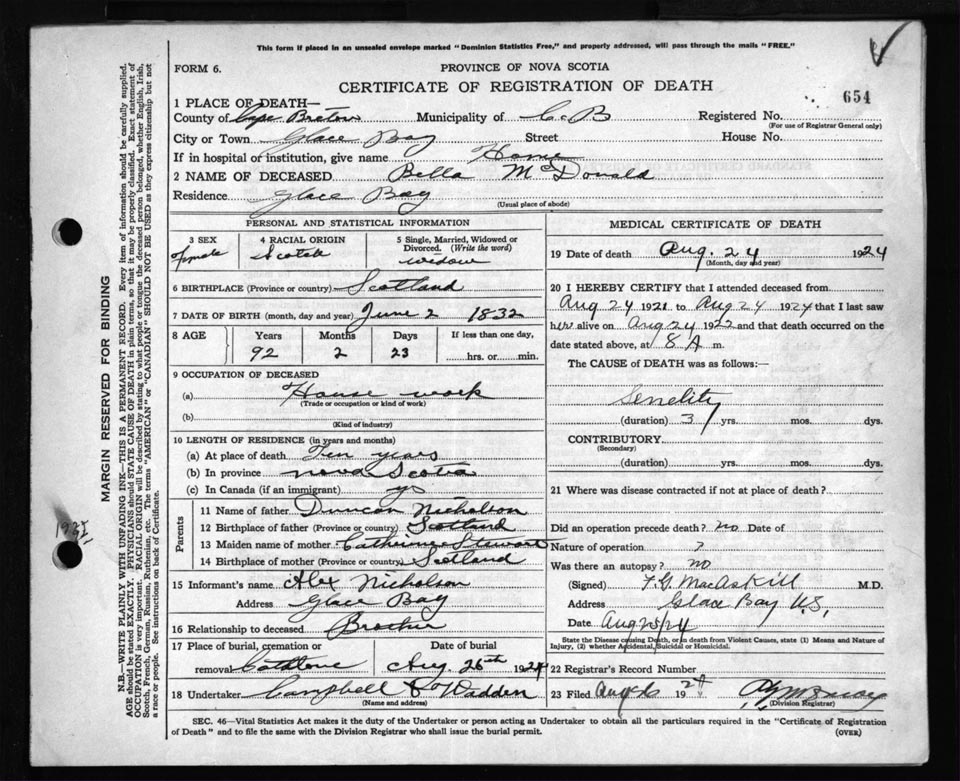 This form if placed in an unsealed envelope marked "Dominion Statistics Free," and properly addressed, will pass through the mails "FREE."
FORM 6.
PROVINCE OF NOVA SCOTIA
CERTIFICATE OF REGISTRATION OF DEATH
654
1 PLACE OF DEATH—
County of Cape Breton Municipality of C. B Registered No.
(For use of Registrar General only)
City or Town Glace Bay Street House No.
If in hospital or institution, give name Home
2 NAME OF DECEASED Bella McDonald
Residence Glace Bay
(Usual place of abode)
PERSONAL AND STATISTICAL INFORMATION
3 SEX
Female
4 RACIAL ORIGIN
Scotch
5 Single, Married, Widowed or Divorced. (Write the word)
widow
6 BIRTHPLACE (Province or country) Scotland
7 DATE OF BIRTH (month, day and year) June 2 1832
8 AGE Years Months Days If less than one day,
92 2 23 hrs. or min.
9 OCCUPATION OF DECEASED
(a) House work
(Trade or occupation or kind of work)
(b)
(Kind of industry)
10 LENGTH OF RESIDENCE (in years and months)
(a) At place of death Ten years
(b) In province nova Scotia
(c) In Canada (if an immigrant)
Parents
11 Name of father Duncan Nicholson
12 Birthplace of father (Province or country) Scotland
13 Maiden name of mother Catherine Stewart
14 Birthplace of mother (Province or country) Scotland
15 Informant's name Alex Nicholson
Address Glace Bay
16 Relationship to deceased Brother
17 Place of burial, cremation or removal Catalone
Date of burial
Aug. 26th 1924
18 Undertaker Campbell & Wadden
(Name and address)
MEDICAL CERTIFICATE OF DEATH
19 Date of death Aug. 24 1924
(Month, day and year)
20 I HEREBY CERTIFY that I attended deceased from
Aug 24 1921 to Aug 24 1924 that I last saw
her alive on Aug 24 1922 and that death occurred on the
date stated above, at 8 A m.
The CAUSE of DEATH was as follows:—
Senelity
(duration) 3 yrs. mos. dys.
CONTRIBUTORY
(Secondary)
(duration) yrs. mos. dys.
21 Where was disease contracted if not at place of death?
Did an operation precede death? no Date of
Nature of operation ?
Was there an autopsy? no
(Signed) MacAskill M.D.
Address Glace Bay
Date Aug 25/24
State the Disease causing Death, or in death from Violent Causes, state (1) Means and Nature of
Injury, (2) whether Accidental, Suicidal or Homicidal.
22 Registrar's Record Number
23 Filed Aug 26 1924
(Division Registrar)
SEC. 46—Vital Statistics Act makes it the duty of the Undertaker or person acting as Undertaker to obtain all the particulars required in the "Certificate of Registration
of Death" and to file the same with the Division Registrar who shall issue the burial permit.
(OVER)
MARGIN RESERVED FOR BINDING
N.B.—WRITE PLAINLY WITH UNFADING INK—THIS IS A PERMANENT RECORD. Every item of information should be carefully supplied.
AGE should be stated EXACTLY. PHYSICIANS should STATE CAUSE OF DEATH in plain terms, so that it may be properly classified. Exact statement of
OCCUPATION is very important. RACIAL ORIGIN will be described by stating to what people or tongue the deceased person belonged, whether English, Irish,
Scotch, French, German, Russian, Ruthenian, etc. The terms "AMERICAN" or "CANADIAN" SHOULD NOT BE USED as they express citizenship but not
a race or people. See instructions on back of Certificate.